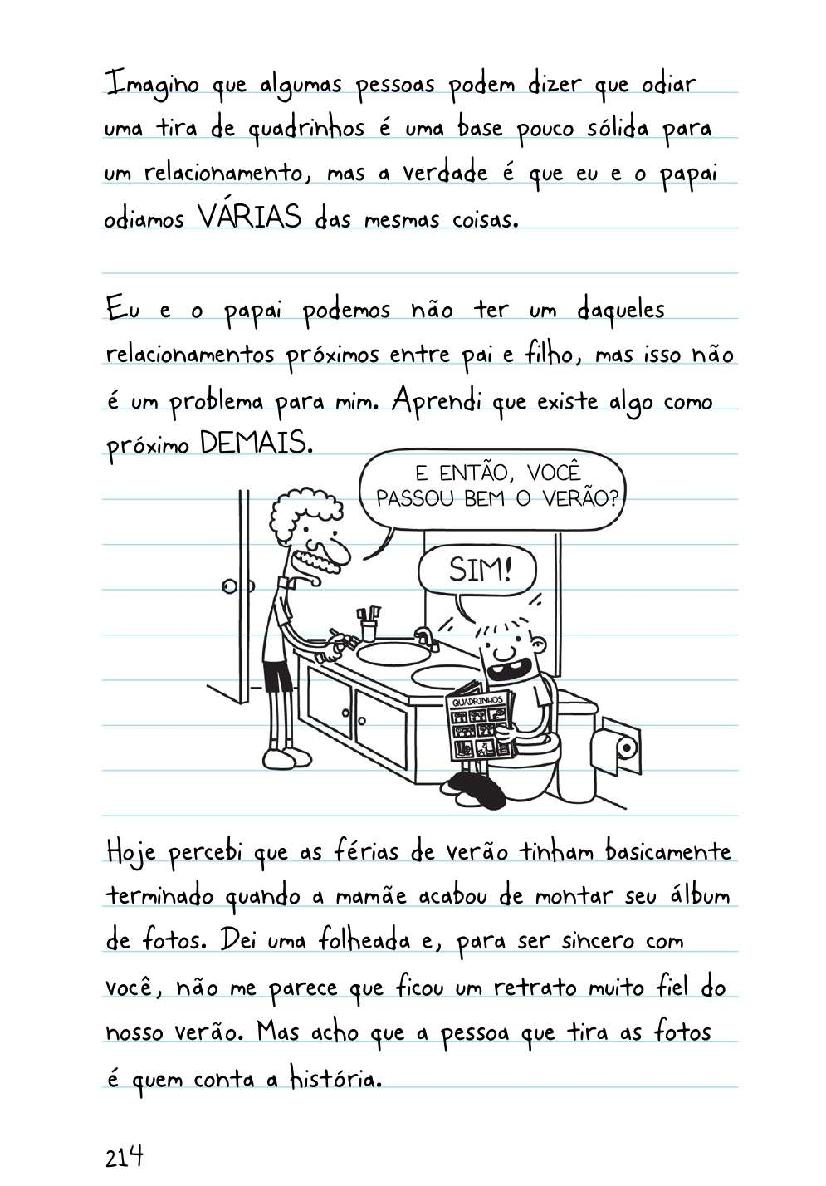 Imagino que algumas pessoas podem dizer que odiar
uma tira de quadrinhos é uma base pouco sólida para
um relacionamento, mas a verdade é que eu e o papai
odiamos VÁRIAS das mesmas coisas.
Eu e o papai podemos não ter um daqueles
relacionamentos próximos entre pai e filho, mas isso não
é um problema para mim. Aprendi que existe algo como
próximo DEMAIS.
E ENTÃO, VOCÊ
PASSOU BEM O VERÃO?
SIM!
QUADRINHOS
Hoje percebi que as férias de verão tinham basicamente
terminado quando a mamãe acabou de montar seu álbum
de fotos. Dei uma folheada e, para ser sincero com
você, não me parece que ficou um retrato muito fiel do
nosso verão. Mas acho que a pessoa que tira as fotos
é quem conta a história.
214